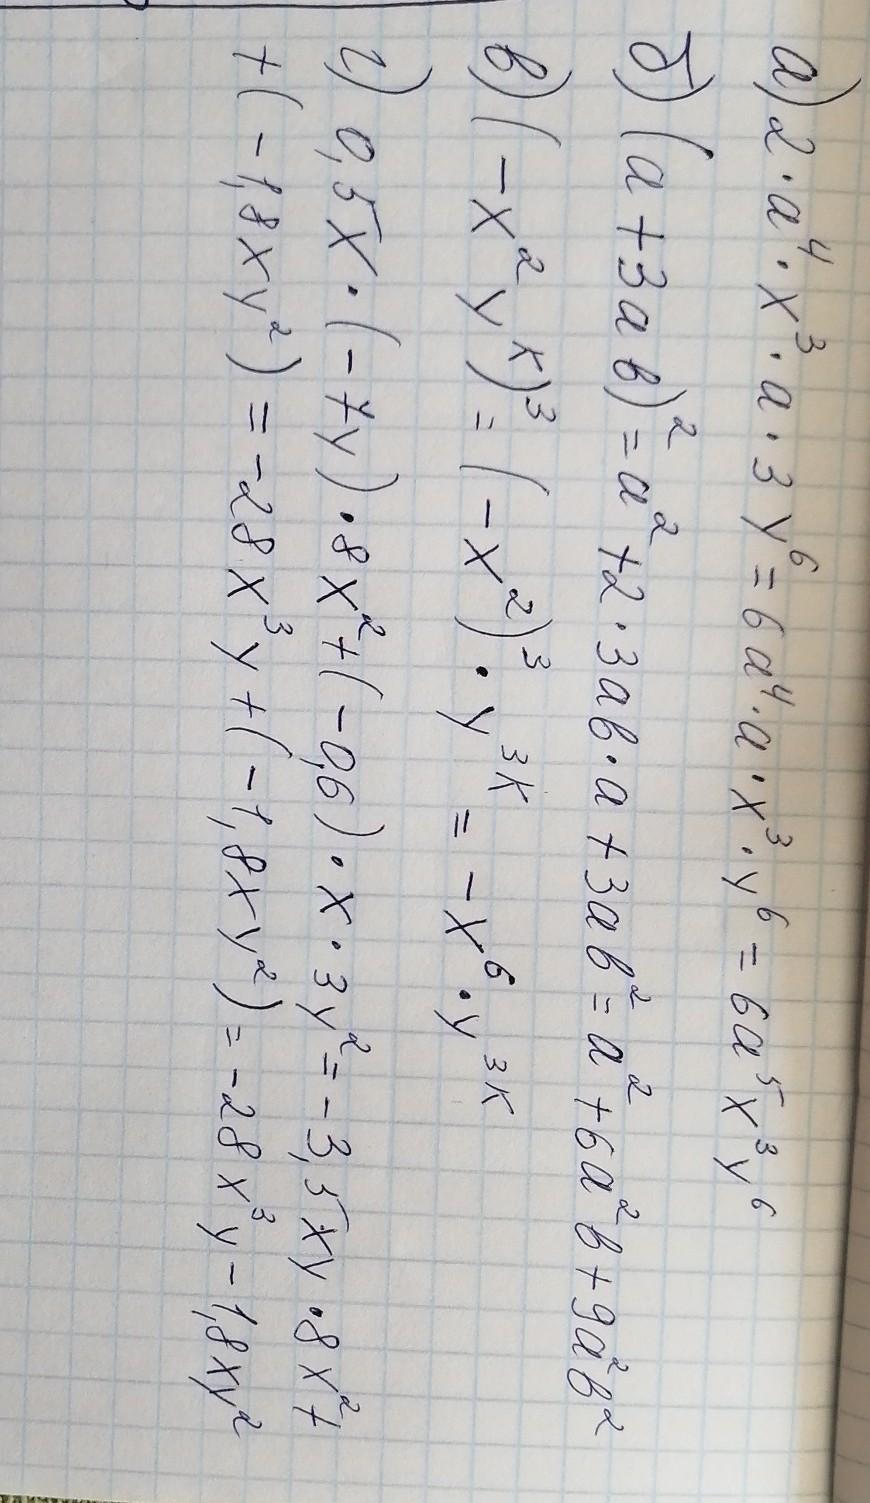 а) 2·a⁴·x³·a·3y⁶=6a⁴·a·x³·y⁶=6a⁵x³y⁶
б) (a+3ab)²=a²+2·3ab·a+3ab²=a²+6a²b+9a²b²
в) (-x²yᵏ)³=(-x²)³·y³ᵏ=-x⁶·y³ᵏ
г) 0,5x·(-7y)·8x²+(-0,6)·x·3y²=-3,5xy·8x²+
+(-1,8xy²)=-28x³y+(-1,8xy²)=-28x³y-1,8xy²